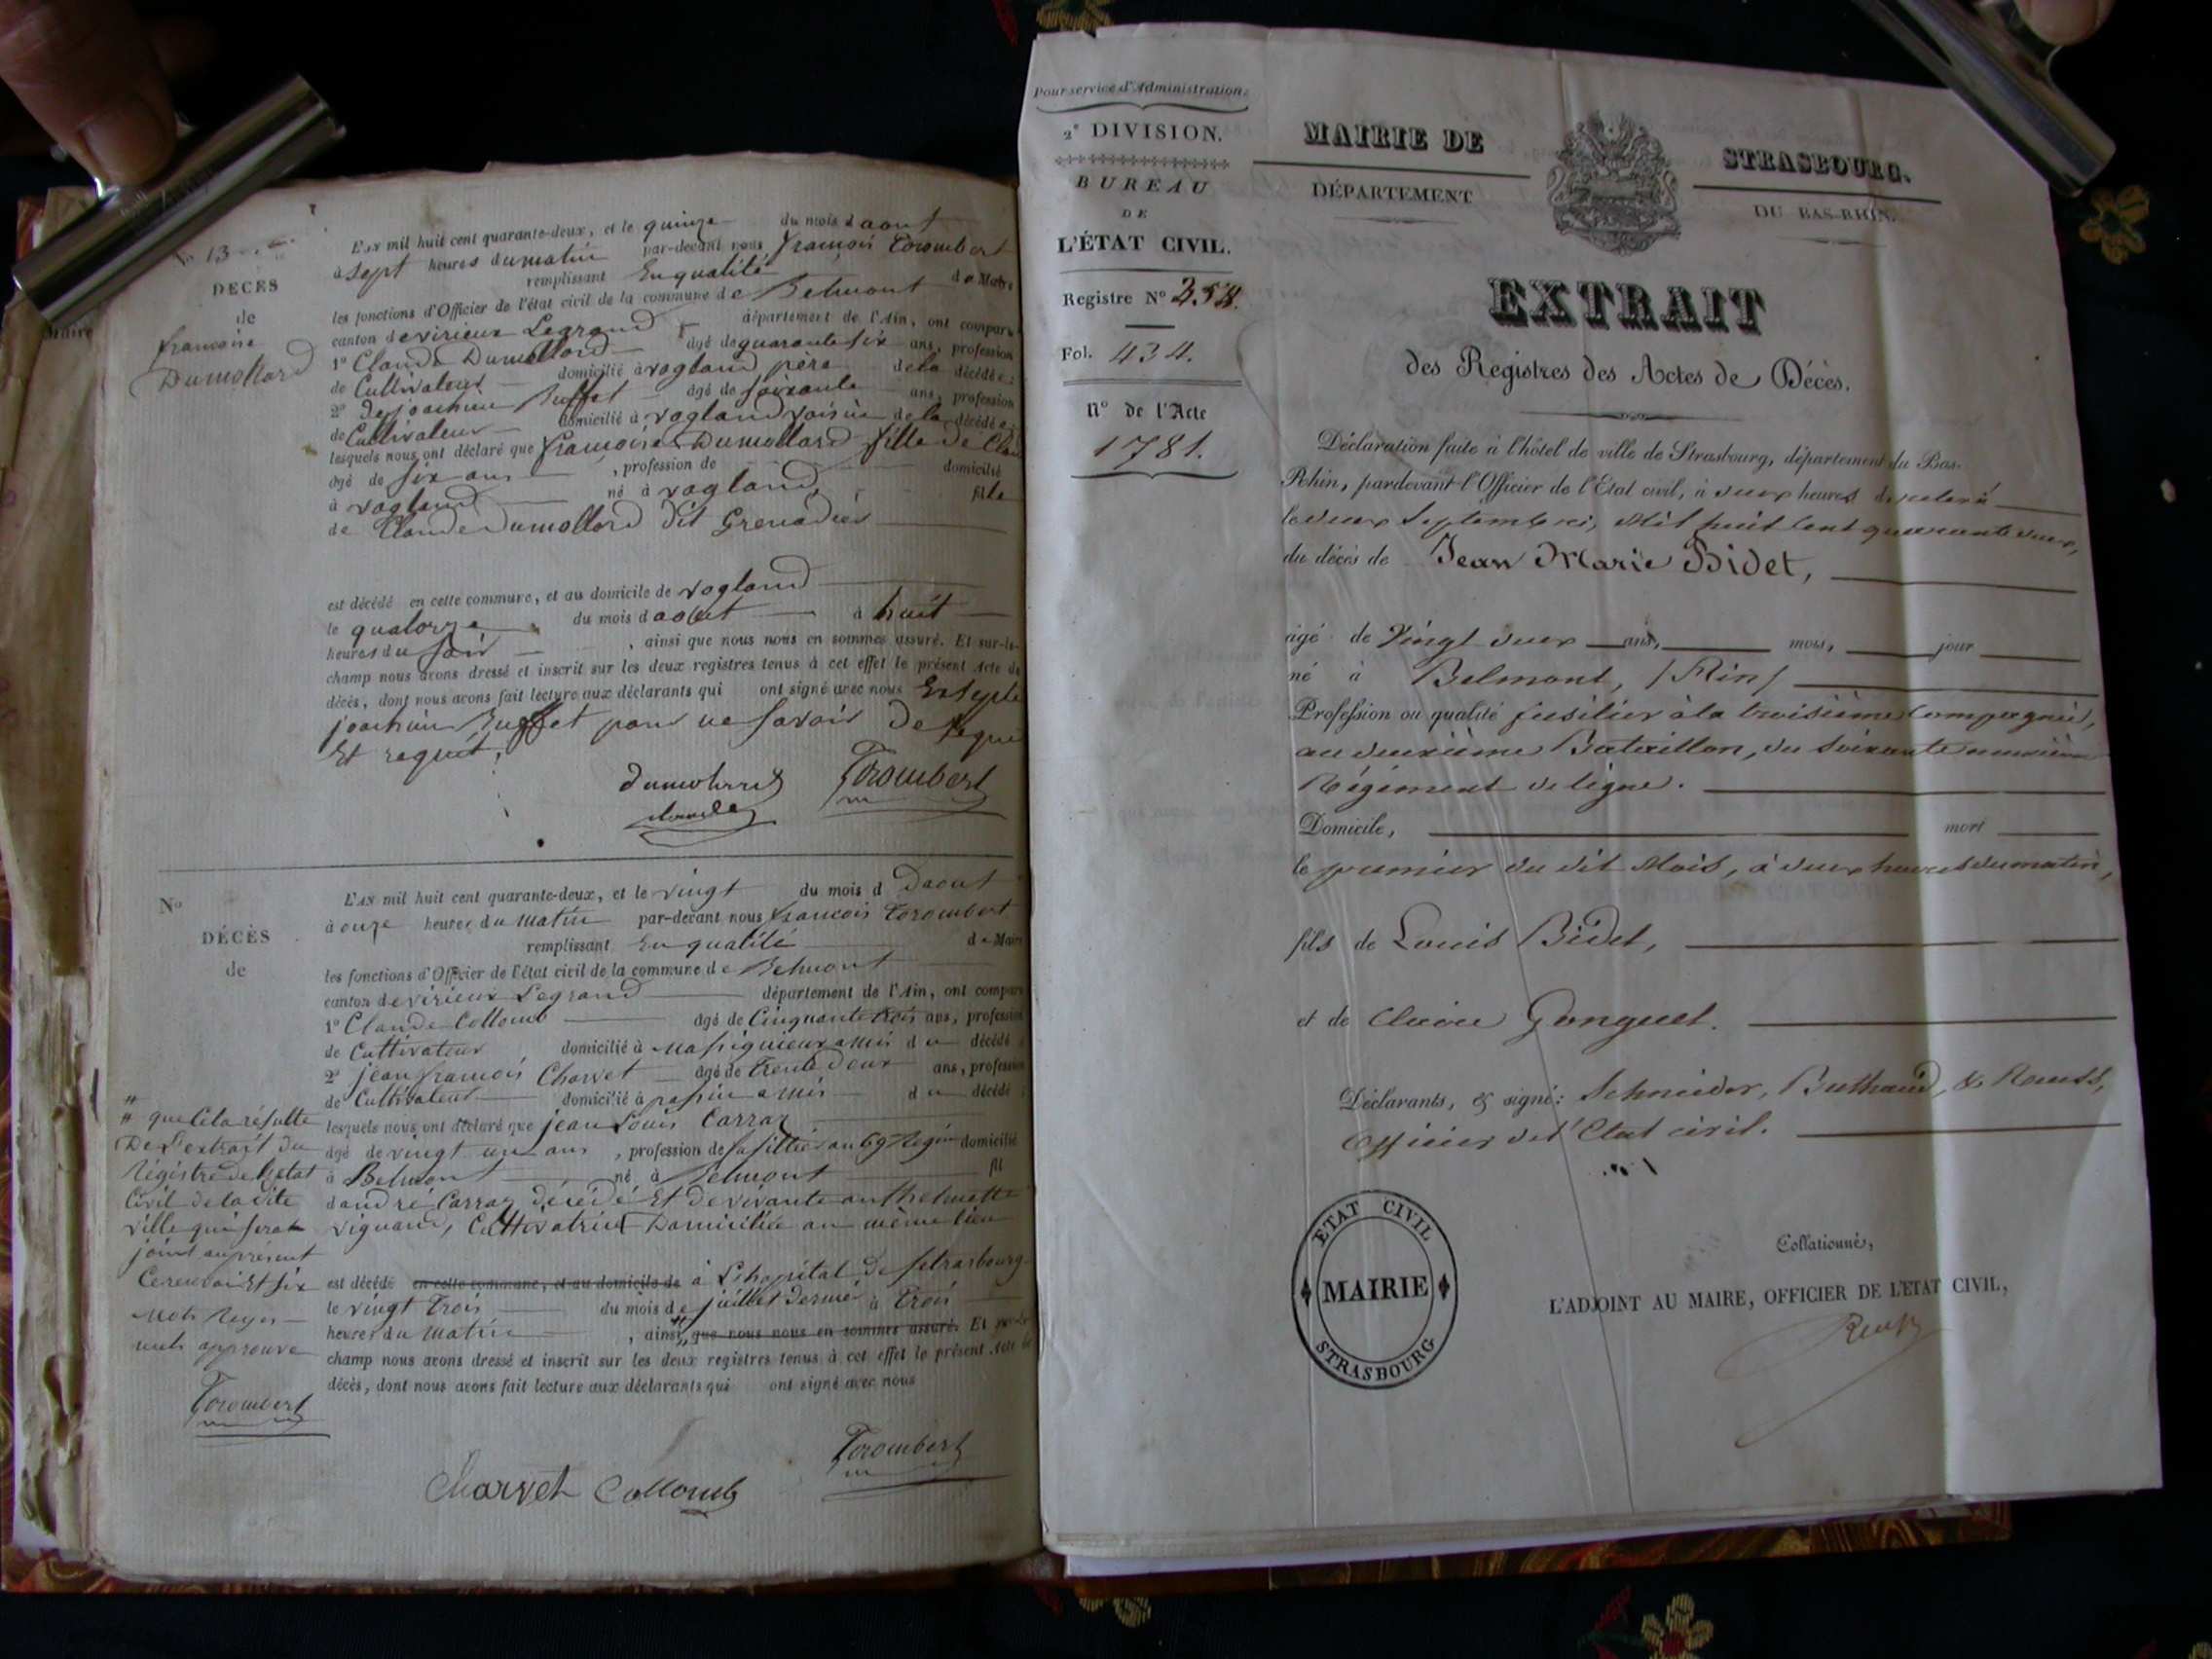 No 13
DECES
de
francoise
Dumollard
L'AN mil huit cent quarante-deux, et le quinze du mois d aout
à sept heures du matin par-devant nous francois Corombert
remplissant En qualité de Maire
les fonctions d'Officier de l'état civil de la commune de Belmont
canton de virieux Legrand département de l'Ain, ont comparu
1° Claude Dumollard agé de quarante six ans, profession
de Cultivateur domicilié à vogland père de la décédée;
2° De joachim Buffet agé de soixante ans, profession
de Cultivateur domicilié à vogland voisin de la décédée;
lesquels nous ont déclaré que francoise Dumollard fille de
agé de six ans , profession de domicilié
à vogland né à vogland, fille
de Claude Dumollard dit Grenadier
est décédé en cette commune, et au domicile de vogland
le quatorze du mois d aout à huit
heures du soir , ainsi que nous nous en sommes assuré. Et sur-le-
champ nous avons dressé et inscrit sur les deux registres tenus à cet effet le présent Acte de
décès, dont nous avons fait lecture aux déclarants qui ont signé avec nous
joachim Buffet pour ne savoir De
Et requit.
dumollard Corombert
claude
No
DÉCÈS
de
L'AN mil huit cent quarante-deux, et le vingt du mois d Daout
à onze heures du matin par-devant nous francois Corombert
remplissant En qualité de Maire
les fonctions d'Officier de l'état civil de la commune de Belmont
canton de virieux Legrand département de l'Ain, ont comparu
1° Claude Collomb agé de Cinquante trois ans, profession
de Cultivateur domicilié à Massignieux amis du décédé
2° jean francois Charvet agé de trente Deux ans, profession
de Cultivateur domicilié à passin amis du décédé
lesquels nous ont déclaré que jean Louis Carraz
agé de vingt un ans , profession de au 69 Regim domicilié
à Belmont né à Belmont fil
d andré Carraz décédé Et de vivante anthelmette
vignand, Cultivatrice Domiciliée au même lieu
est décédé en cette commune, et au domicile de à L'hopital de strasbourg
le vingt trois du mois de juillet dernier à trois
heures du matin , ainsi que nous nous en sommes assuré. Et sur-le-
champ nous avons dressé et inscrit sur les deux registres tenus à cet effet le présent Acte de
décès, dont nous avons fait lecture aux déclarants qui ont signé avec nous
que Cela résulte
De L'extrait du
Régistre de L'état
Civil de la dite
ville qui sera
joint au présent
Ce renvoi Et six
mots rayés
nuls approuvé
Corombert
Charvet Collomb Corombert
Pour service d'Administration.
2e DIVISION.
BUREAU
DE
L'ÉTAT CIVIL.
Registre N° 258.
Fol. 434.
N° de l'Acte
1781.
MAIRIE DE STRASBOURG.
DÉPARTEMENT DU BAS-RHIN.
EXTRAIT
des Registres des Actes de Décès.
Déclaration faite à l'hôtel de ville de Strasbourg, département du Bas-
Rhin, pardevant l'Officier de l'Etat civil, à deux heures de relevé
le deux Septembre, Mil huit cent quarante deux,
du décès de Jean Marie Bidet,
agé de Vingt deux ans, mois, jour
né à Belmont, /Ain/
Profession ou qualité fusilier à la troisième Compagnie,
au deuxième Bataillon, du soixante neuvième
Régiment de ligne.
Domicile, mort
le premier du dit Mois, à deux heures du matin,
fils de Louis Bidet,
et de Claire Gonguet.
Déclarants, & signé: Schneider, Buthaud, & Reuss,
Officier de l'Etat civil.
ETAT CIVIL
MAIRIE
STRASBOURG
Collationné,
L'ADJOINT AU MAIRE, OFFICIER DE L'ETAT CIVIL,
Reuss